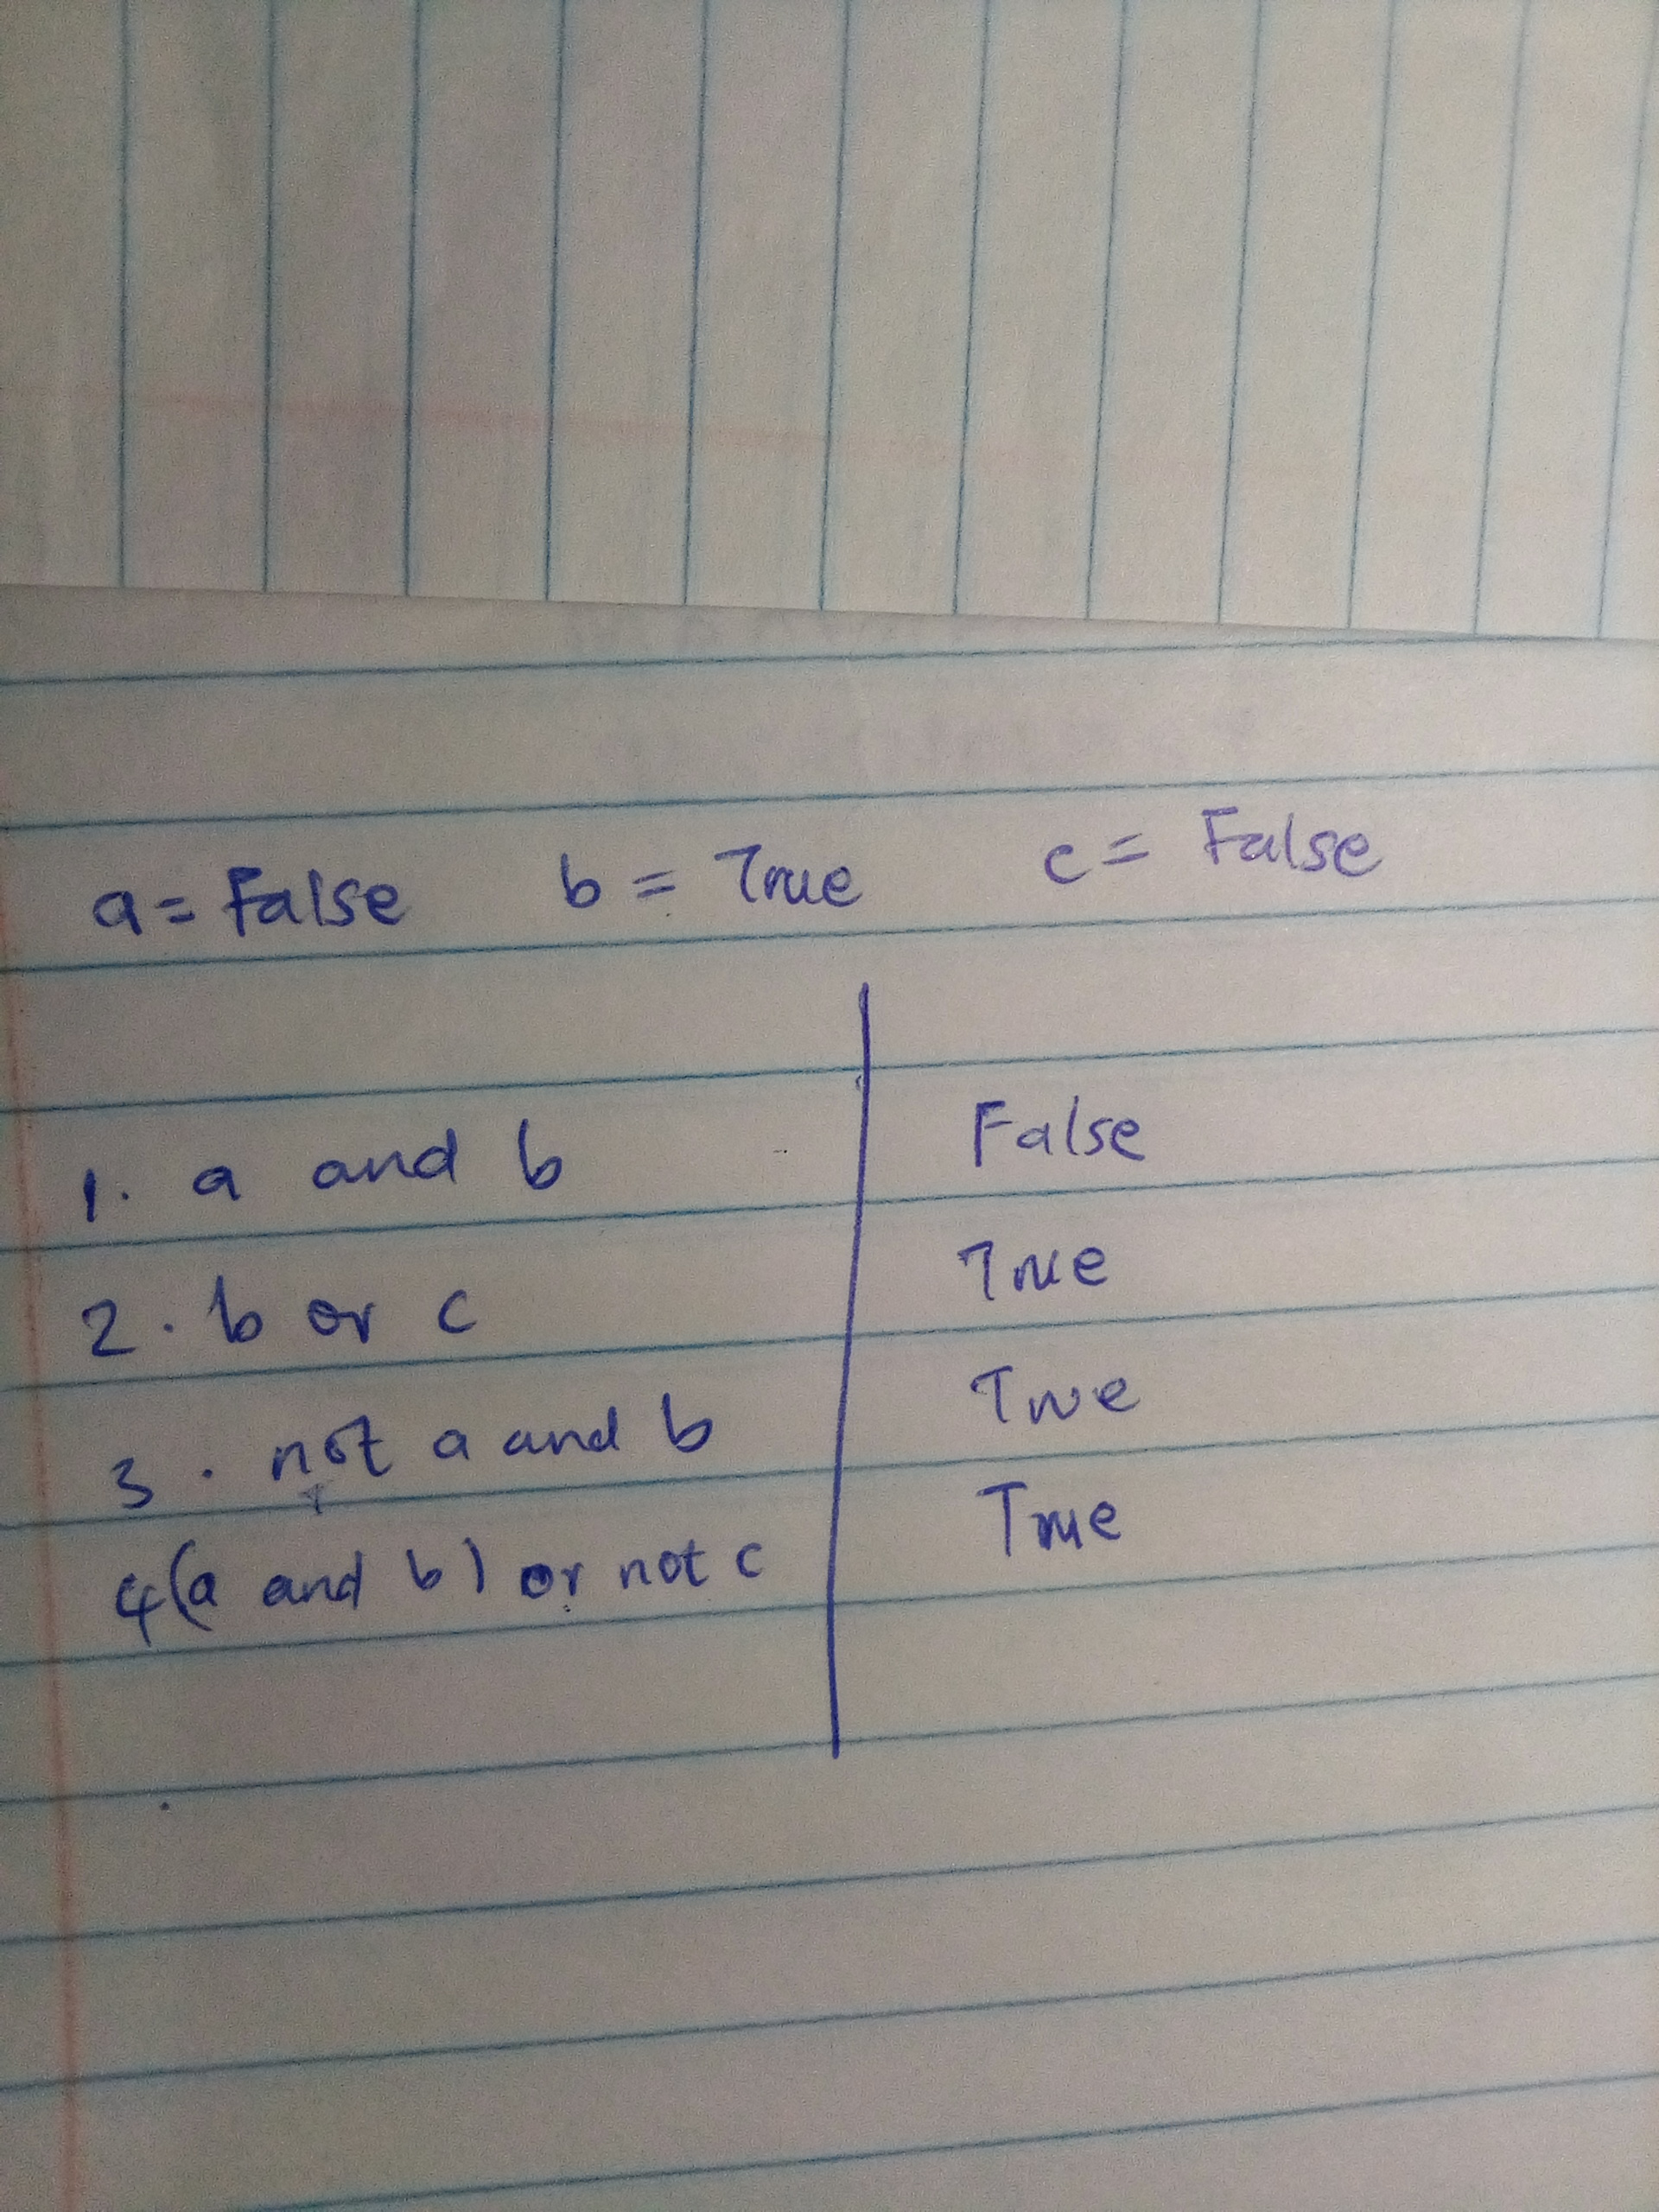 a = False b = True c = False
1. a and b False
2. b or c True
3. not a and b True
4(a and b) or not c True